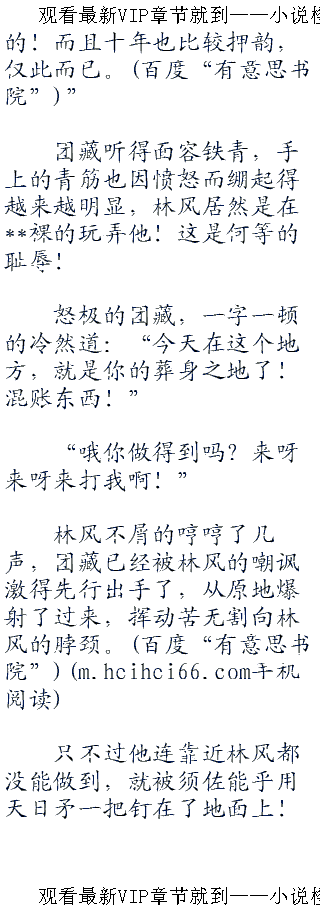 观看最新VIP章节就到——小说
的！而且十年也比较押韵，
仅此而已。(百度“有意思书
院”)”
团藏听得面容铁青，手
上的青筋也因愤怒而绷起得
越来越明显，林风居然是在
**裸的玩弄他！这是何等的
耻辱！
怒极的团藏，一字一顿
的冷然道：“今天在这个地
方，就是你的葬身之地了！
混账东西！”
“哦你做得到吗？来呀
来呀来打我啊！”
林风不屑的哼哼了几
声，团藏已经被林风的嘲讽
激得先行出手了，从原地爆
射了过来，挥动苦无割向林
风的脖颈。(百度“有意思书
院”)(m.hcihci66.com手机
阅读)
只不过他连靠近林风都
没能做到，就被须佐能乎用
天日矛一把钉在了地面上！
观看最新VIP章节就到——小说